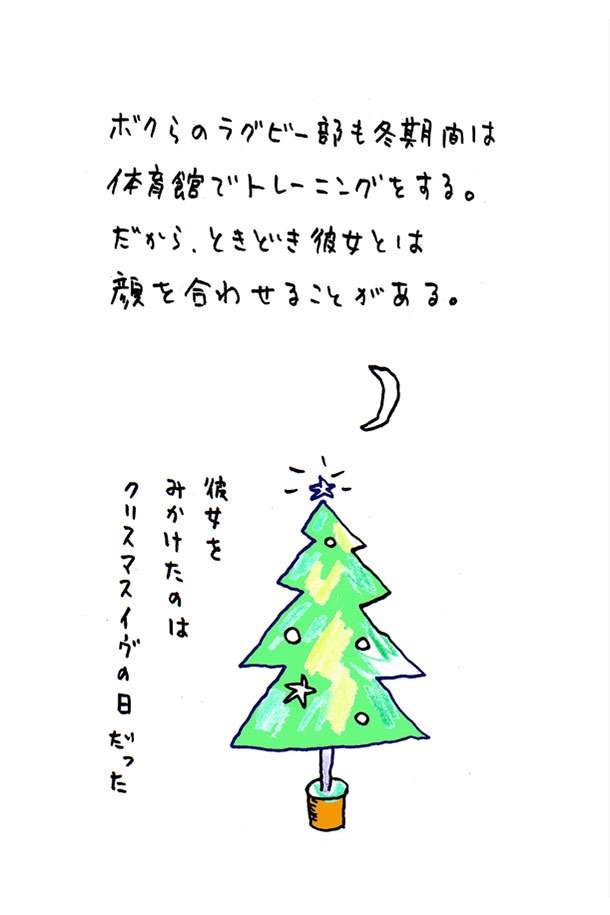 ボクらのラグビー部も冬期間は
体育館でトレーニングをする。
だから、ときどき彼女とは
顔を合わせることがある。
彼女を
みかけたのは
クリスマスイヴの日だった